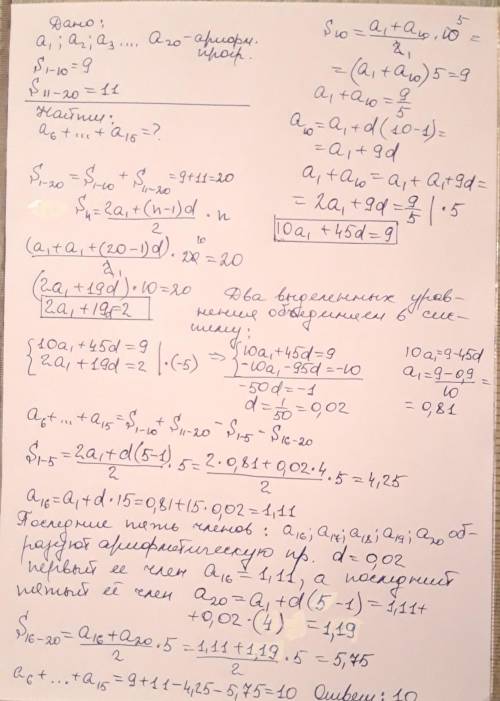 Дано:
a₁; a₂; a₃ .... a₂₀ - арифм. прогр.
S₁₋₁₀ = 9
S₁₁₋₂₀ = 11
Найти:
a₆ + ... + a₁₅ = ?
S₁₀ = (a₁ + a₁₀)/2 · 10 =
= (a₁ + a₁₀) 5 = 9
a₁ + a₁₀ = 9/5
a₁₀ = a₁ + d(10-1) =
= a₁ + 9d
a₁ + a₁₀ = a₁ + a₁ + 9d =
= 2a₁ + 9d = 9/5 | · 5
10a₁ + 45d = 9
S₁₋₂₀ = S₁₋₁₀ + S₁₁₋₂₀ = 9+11 = 20
Sₙ = (2a₁ + (n-1)d)/2 · n
(a₁ + a₁ + (20-1)d)/2 · 20 = 20
(2a₁ + 19d) · 10 = 20
2a₁ + 19d = 2
Два выделенных урав-
нения объединяем в сис-
тему:
{10a₁ + 45d = 9
{2a₁ + 19d = 2 | · (-5)
⇒ {10a₁ + 45d = 9
{-10a₁ - 95d = -10
-50d = -1
d = 1/50 = 0,02
10a₁ = 9 - 45d
a₁ = (9 - 0,9)/10 =
= 0,81
a₆ + ... + a₁₅ = S₁₋₁₀ + S₁₁₋₂₀ - S₁₋₅ - S₁₆₋₂₀
S₁₋₅ = (2a₁ + d(5-1))/2 · 5 = (2 · 0,81 + 0,02 · 4)/2 · 5 = 4,25
a₁₆ = a₁ + d · 15 = 0,81 + 15 · 0,02 = 1,11
Последние пять членов: a₁₆; a₁₇; a₁₈; a₁₉; a₂₀ об-
разуют арифметическую пр. d = 0,02
первый ее член a₁₆ = 1,11, а последний
пятый её член a₂₀ = a₁ + d(5-1) = 1,11 +
+ 0,02 · (4) = 1,19
S₁₆₋₂₀ = (a₁₆ + a₂₀)/2 · 5 = (1,11 + 1,19)/2 · 5 = 5,75
a₆ + ... + a₁₅ = 9 + 11 - 4,25 - 5,75 = 10 Ответ: 10